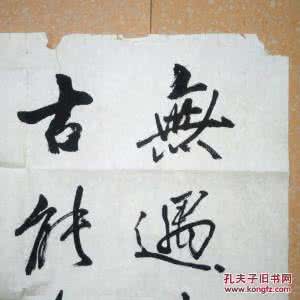 無遇
古能
孔夫子旧书网
www.kongfz.com